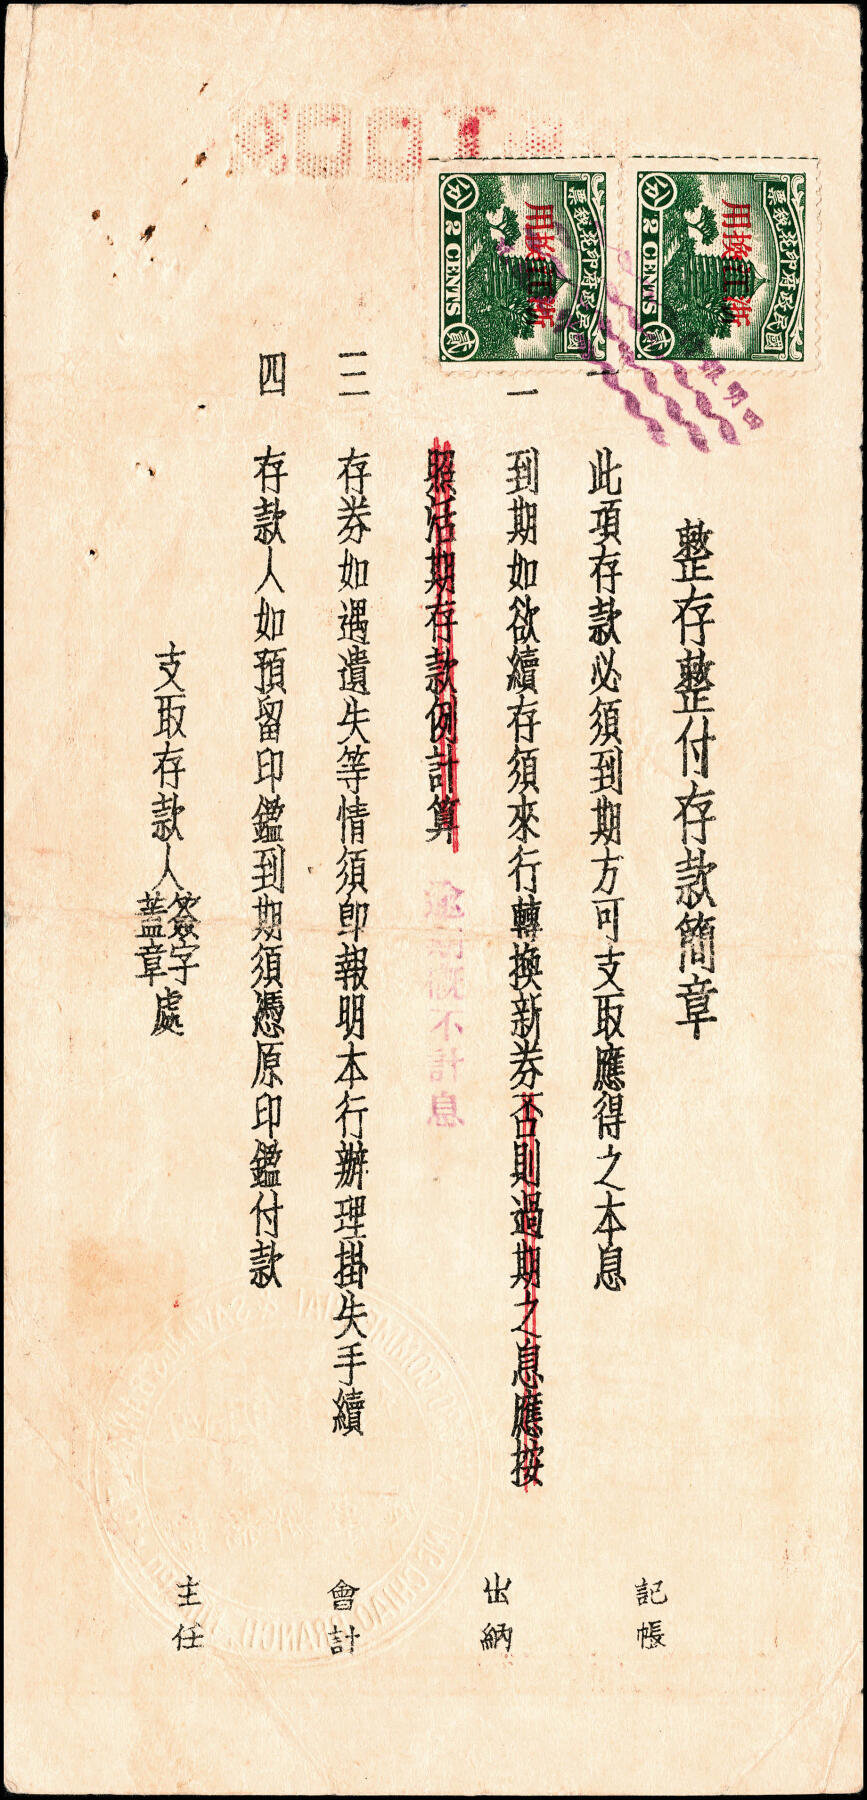 整存整付存款簡章
一 此項存款必須到期方可支取應得之本息
二 到期如欲續存須來行轉換新券否則過期之息應按
照活期存款例計算 逾期概不計息
三 存券如遇遺失等情須卽報明本行辦理掛失手續
四 存款人如預留印鑑到期須憑原印鑑付款
支取存款人簽字蓋章處
記帳
出納
會計
主任
國民政府印花稅票
浙江換用
貳分
2 CENTS
國民政府印花稅票
浙江換用
貳分
2 CENTS
四明銀
COMMERCIAL & SAVINGS BANK
BRANCH